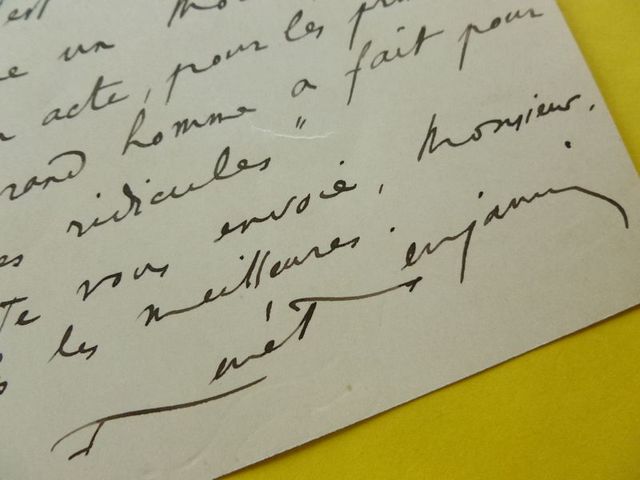 est un
e un
acte, pour les
rand homme a fait pour
es ridicules"
Je vous envoie, Monsieur,
les meilleures.
enjamin